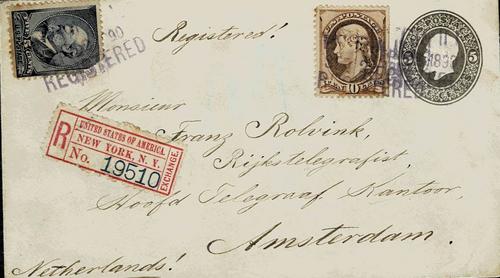 90
REGISTERED
Registered!
U.S. POSTAGE
10
11
1890
5
5
Monsieur
Franz Rolvink,
Rijkstelegrafist,
Hoofd Telegraaf Kantoor,
Amsterdam.
Netherlands!
R
UNITED STATES OF AMERICA.
NEW YORK, N.Y.
No. 19510
EXCHANGE.